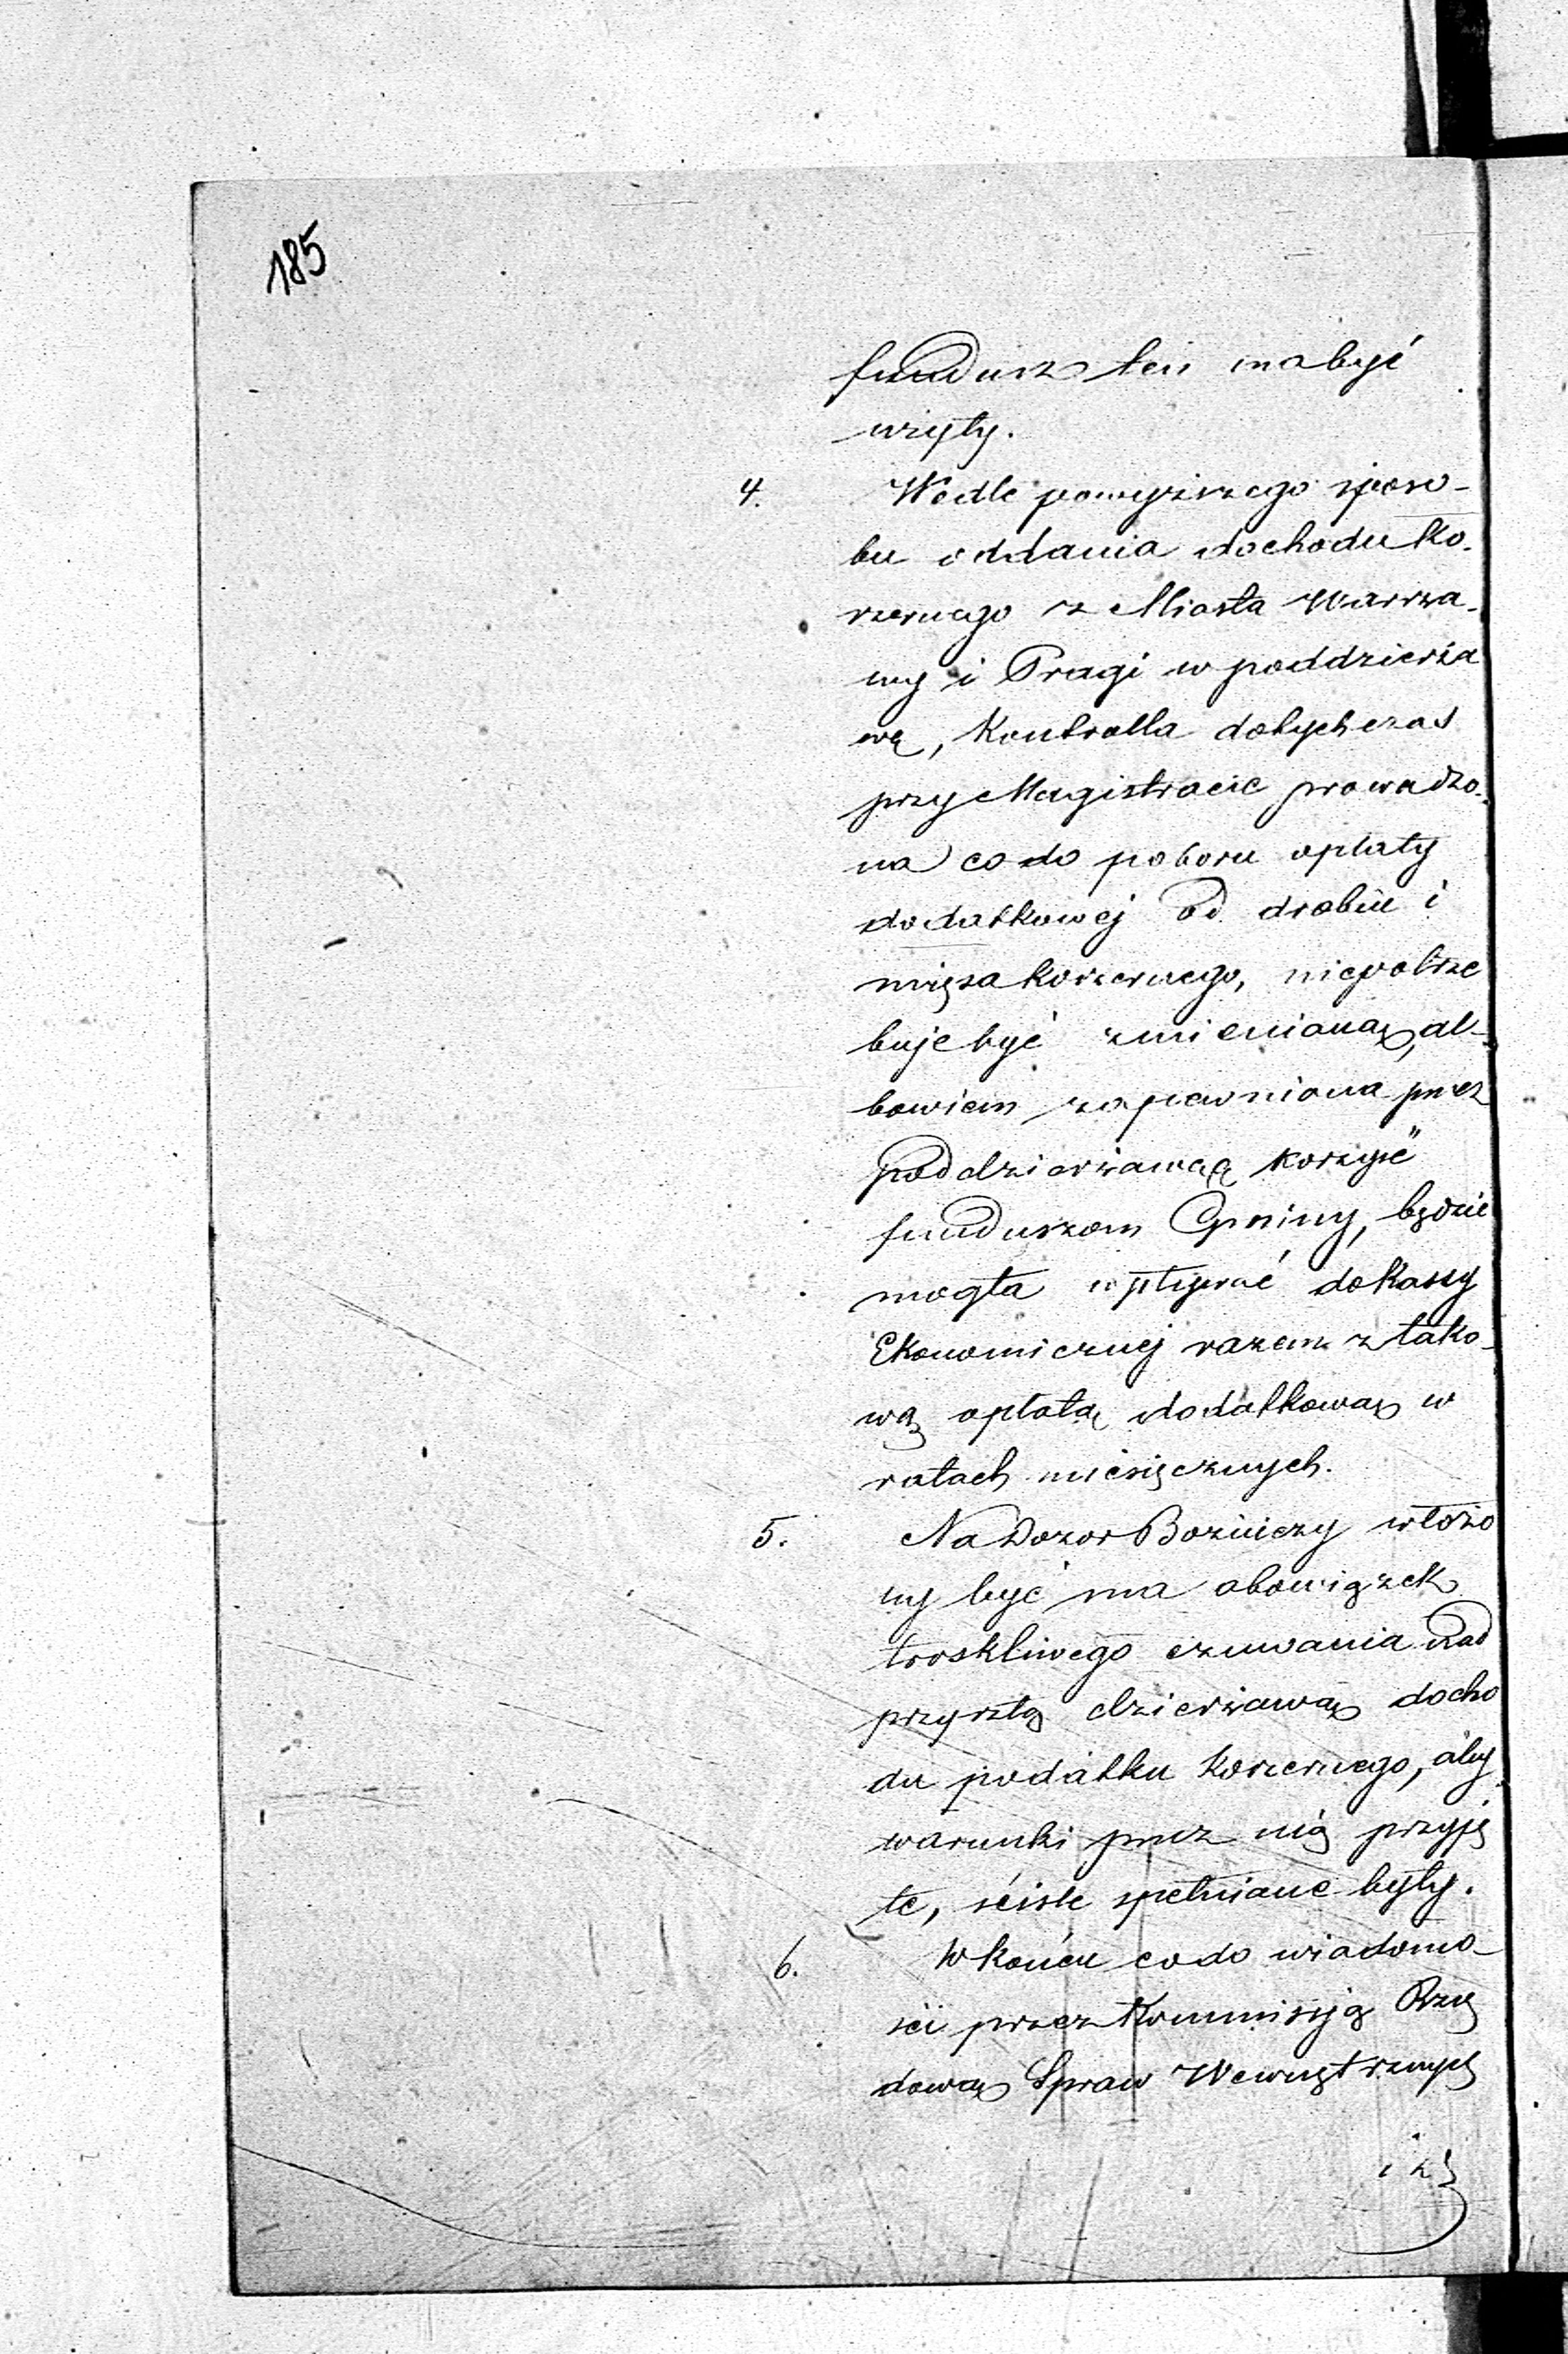 185
fundusz ten ma być
użyty.
4. Wedle powyższego sposo-
bu oddania dochodu ko-
szernego z Miasta Warsza-
wy i Pragi w poddzierża
wę, Kontrolla dotychczas
przy Magistracie prowadzo-
na co do poboru opłaty
dodatkowej od drobiu i
mięsa koszernego, niepotrze
buje być zmienianą, al-
bowiem zapewniona przez
poddzierżawcę korzyść
funduszom Gminy, będzie
mogła wpływać do Kassy
Ekonomicznej razem z tako-
wą opłatą dodatkową w
ratach miesięcznych.
5. Na Dozor Bożniczy włożo
ny być ma obowiązek
troskliwego czuwania nad
przyszłą dzierżawą docho
du podatku koszernego, aby
warunki przez nią przyję
te, ściśle spełniane były.
6. W końcu co do wiadomo-
ści przez Kommissyą Rzą
dową Spraw Wewnętrznych